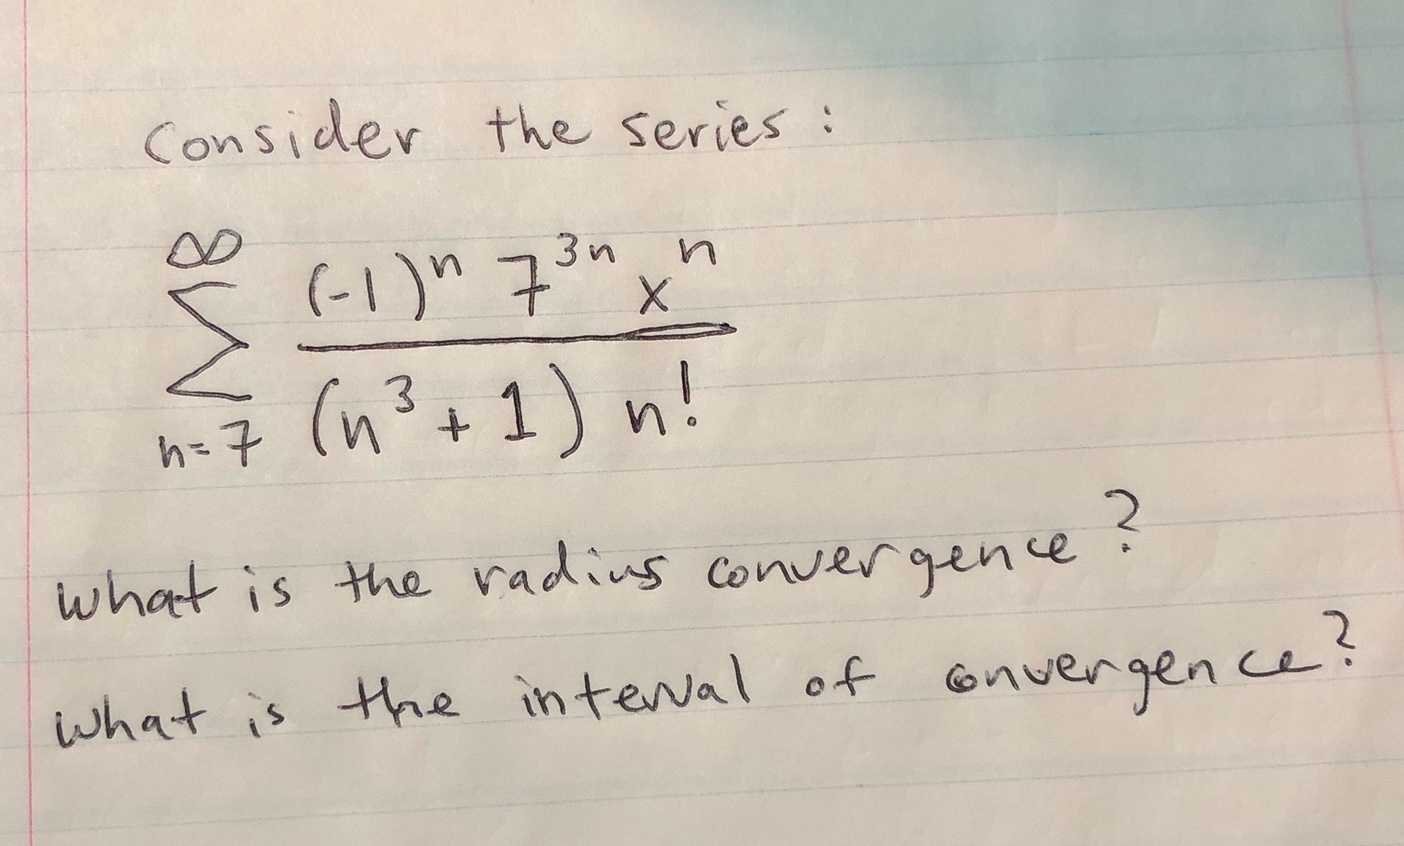 Consider the series:
∞
∑ (-1)ⁿ 7³ⁿ xⁿ / (n³ + 1) n!
n=7
What is the radius convergence?
What is the interval of convergence?